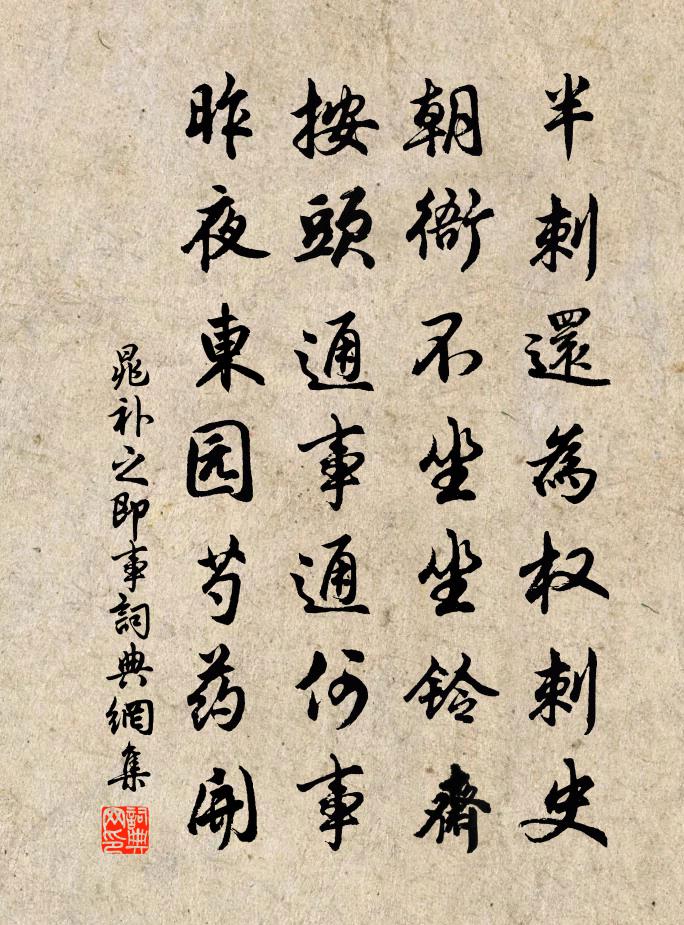 半刺還為权刺史
朝衙不坐坐铃齋
按頭通事通何事
昨夜東园芍药開
晁补之即事詞典網集
詞典网印